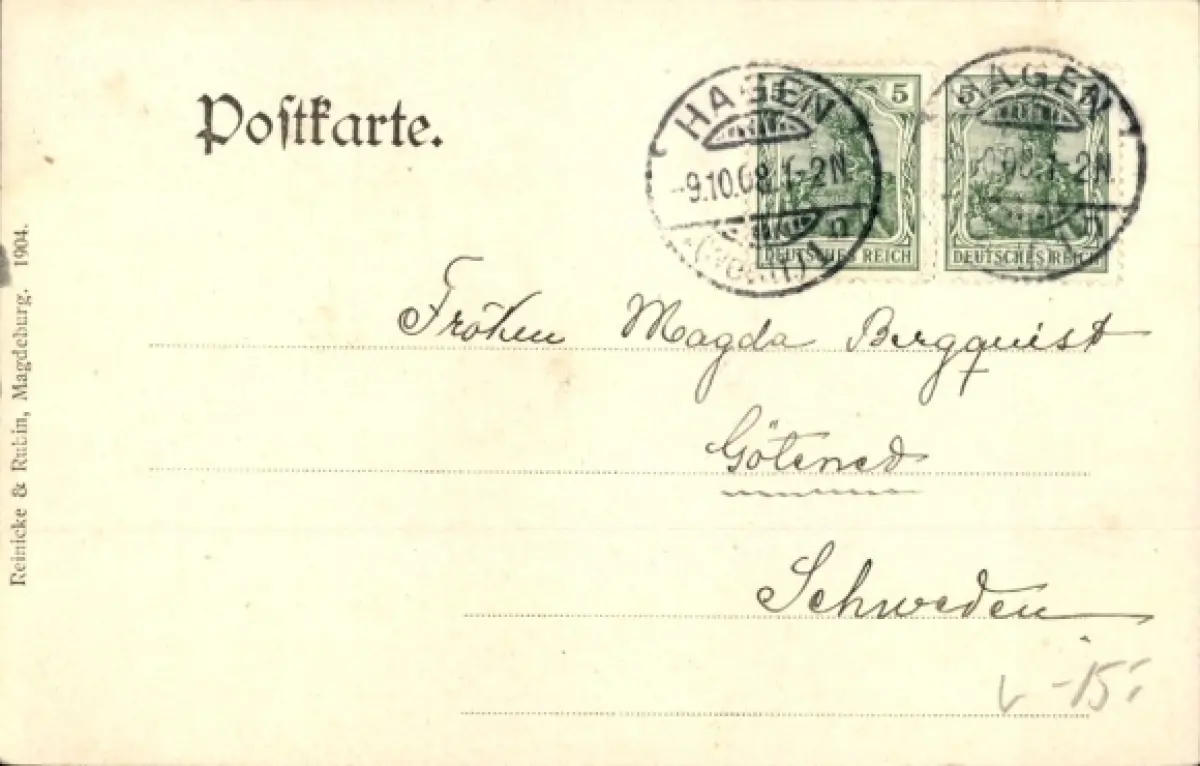 Postkarte.
HAGEN
-9.10.08.1-2N.
(Westf.) 1
5
DEUTSCHES REICH
HAGEN
5
DEUTSCHES REICH
Fröken Magda Bergquist
Götened
Schweden
-15
Reinicke & Rubin, Magdeburg. 1904.